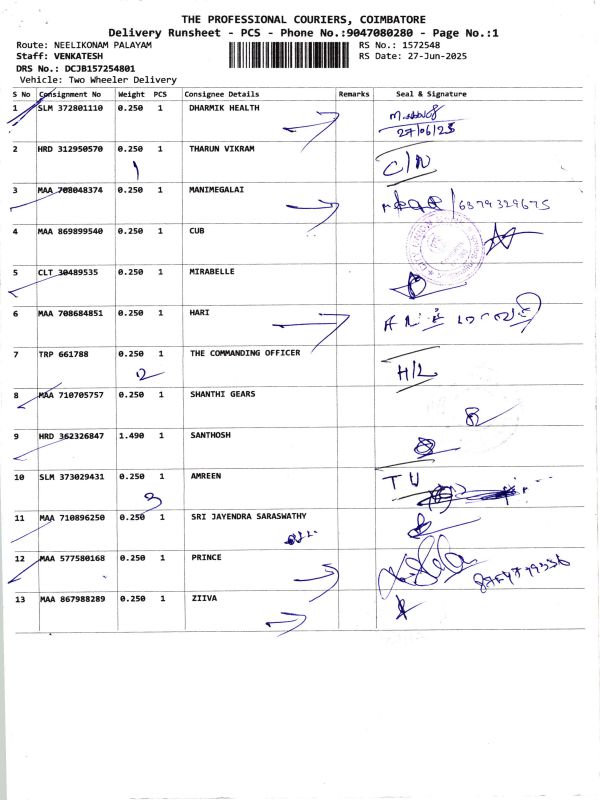 THE PROFESSIONAL COURIERS, COIMBATORE
Delivery Runsheet - PCS - Phone No.:9047080280 - Page No.:1
Route: NEELIKONAM PALAYAM
RS No.: 1572548
Staff: VENKATESH
RS Date: 27-Jun-2025
DRS No.: DCJB157254801
Vehicle: Two Wheeler Delivery
S No Consignment No Weight PCS Consignee Details Remarks Seal & Signature
1 SLM 372801110 0.250 1 DHARMIK HEALTH
27/06/25
2 HRD 312950570 0.250 1 THARUN VIKRAM C/N
1
3 MAA 708048374 0.250 1 MANIMEGALAI 6379329675
4 MAA 869899540 0.250 1 CUB
5 CLT 30489535 0.250 1 MIRABELLE
6 MAA 708684851 0.250 1 HARI
7 TRP 661788 0.250 1 THE COMMANDING OFFICER H/L
2
8 MAA 710705757 0.250 1 SHANTHI GEARS
9 HRD 362326847 1.490 1 SANTHOSH
10 SLM 373029431 0.250 1 AMREEN T U
3
11 MAA 710896250 0.250 1 SRI JAYENDRA SARASWATHY
12 MAA 577580168 0.250 1 PRINCE
13 MAA 867988289 0.250 1 ZIIVA